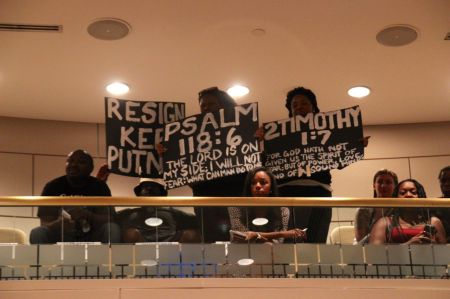 RESIGN
KEEP
PUTN
PSALM
118:6
THE LORD IS ON
MY SIDE; I WILL NOT
FEAR: WHAT CAN MAN DO
2 TIMOTHY
1:7
FOR GOD HATH NOT
GIVEN US THE SPIRIT OF
FEAR; BUT OF POWER, LOVE,
SOUND